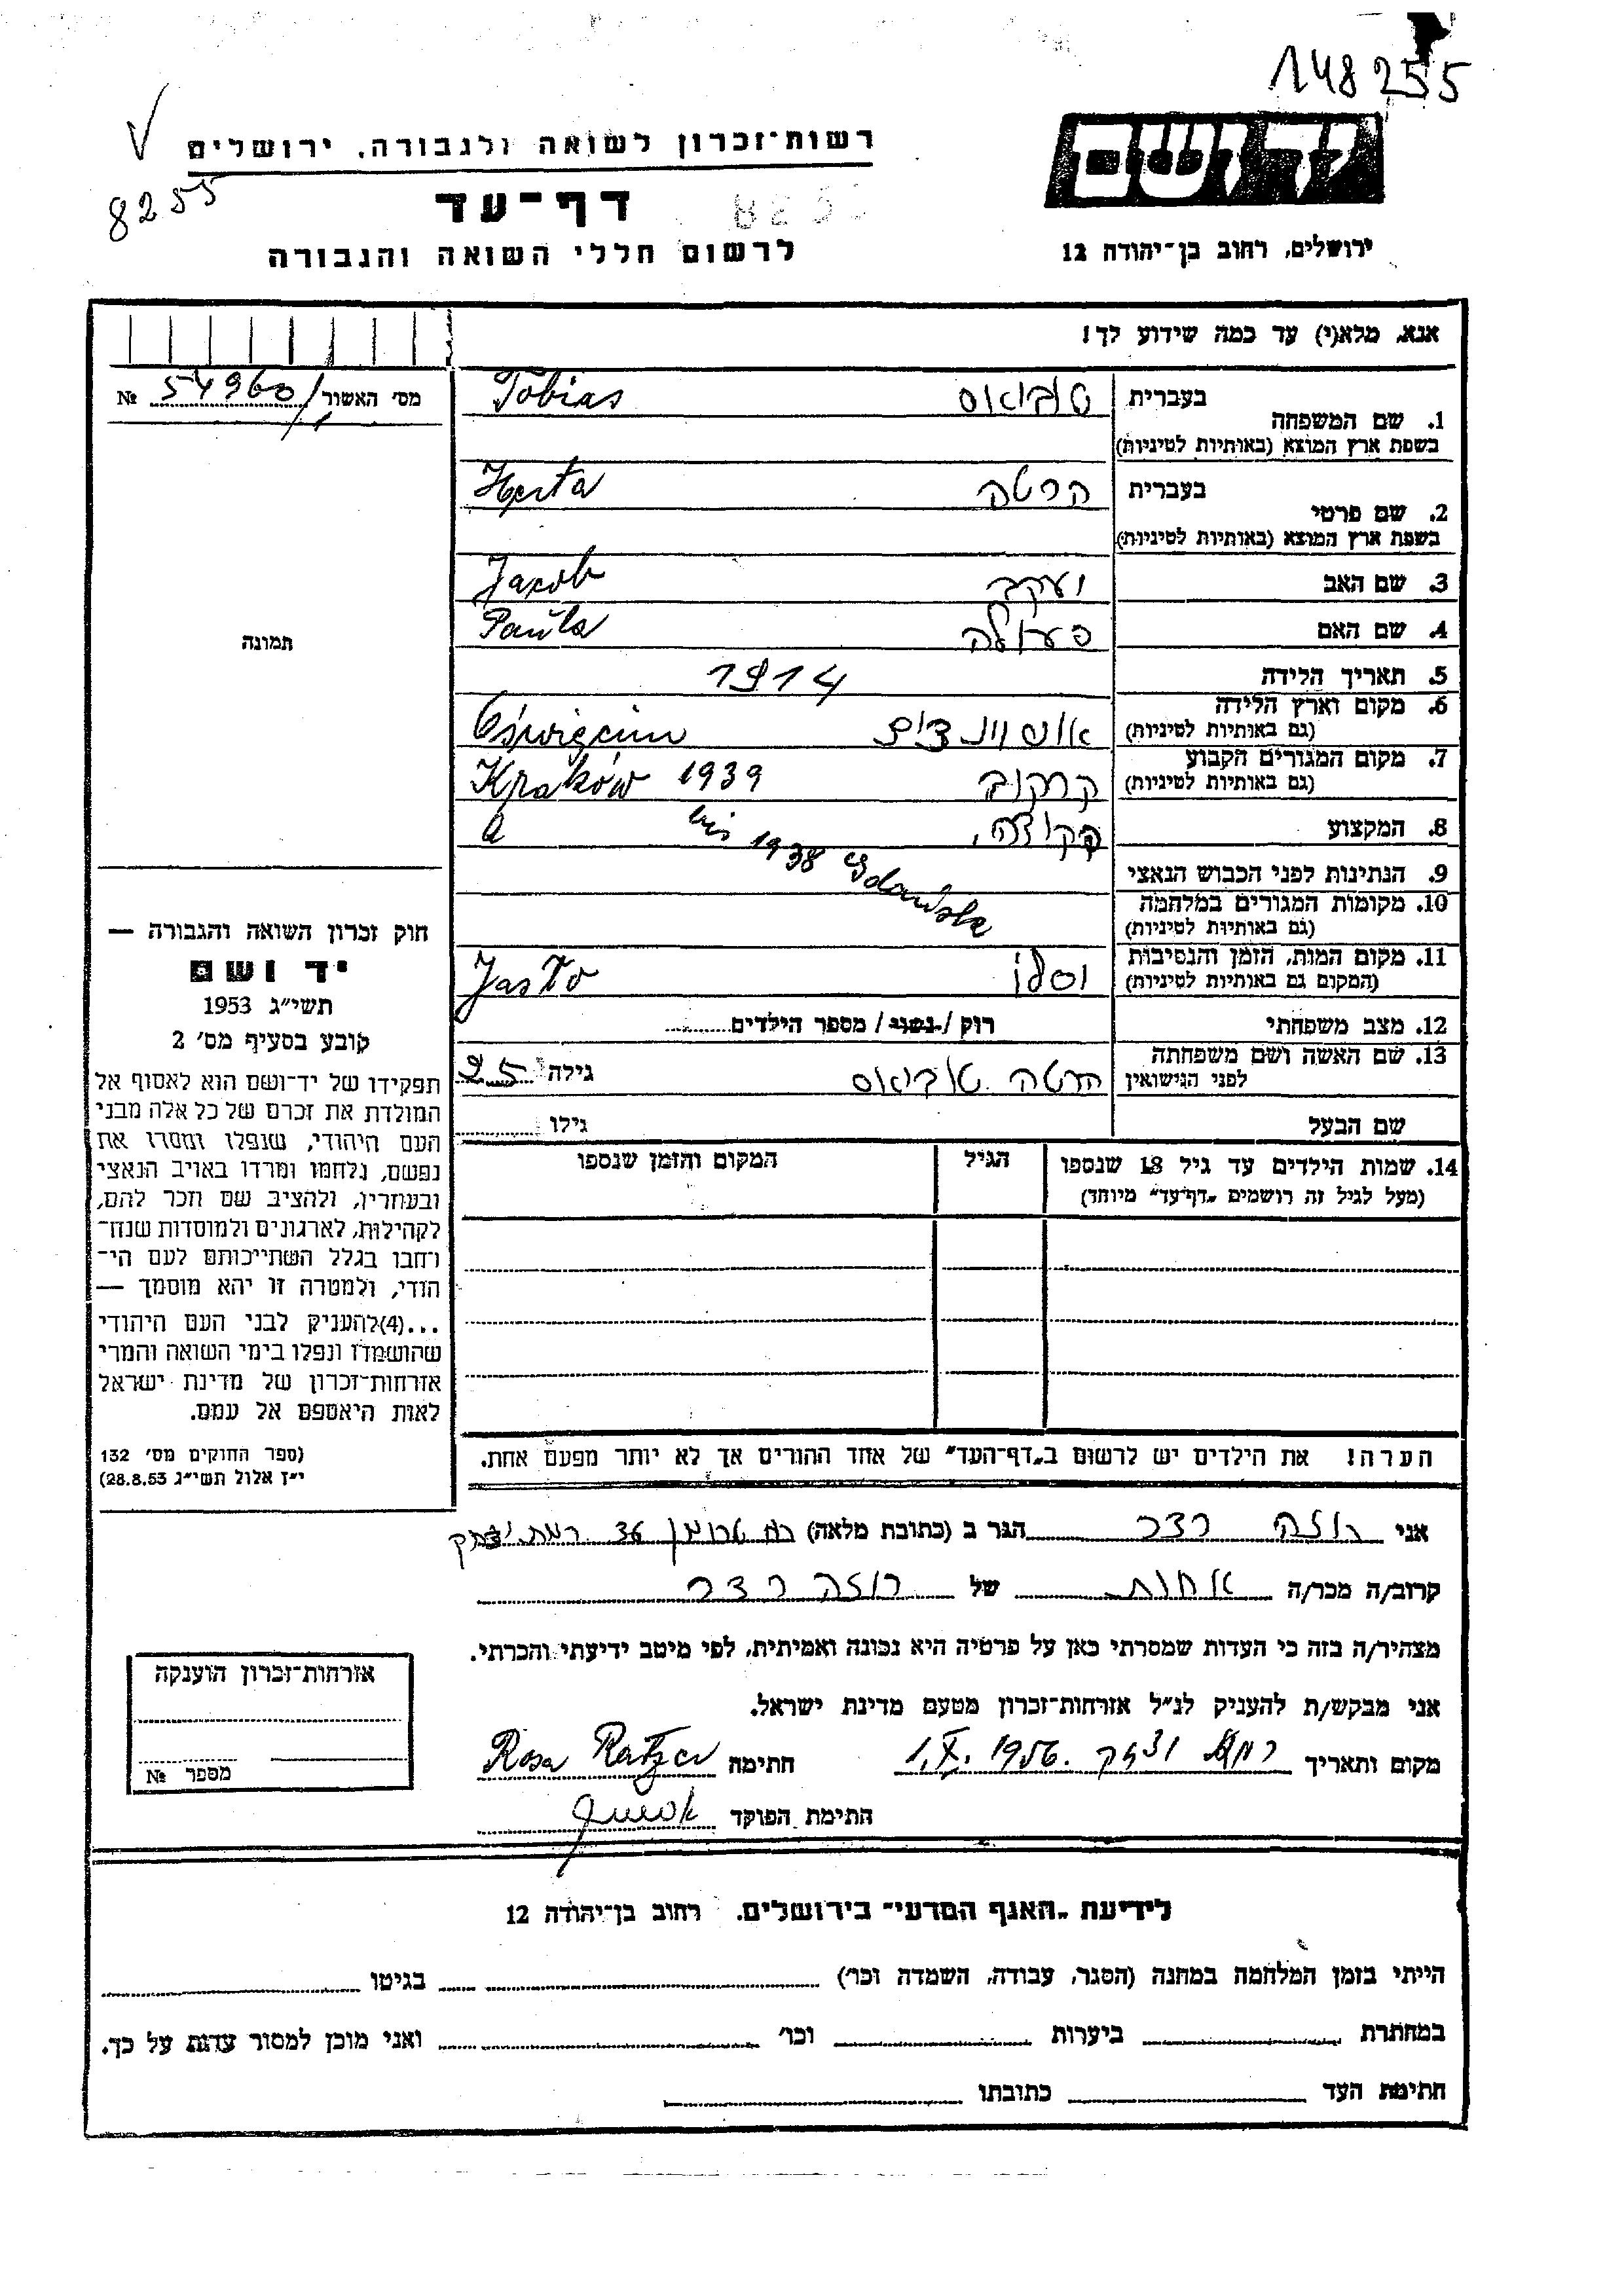 148255
רשות־זכרון לשואה ולגבורה, ירושלים
8255
יד ושם
דף־עד
לרשום חללי השואה והגבורה
ירושלים, רחוב בן־יהודה 12
אנא, מלא(י) עד כמה שידוע לך!
מס' האשור 54960/1 №
בעברית טוביאס Tobias
1. שם המשפחה
בשפת ארץ המוצא (באותיות לטיניות)
בעברית הרטה Herta
2. שם פרטי
בשפת ארץ המוצא (באותיות לטיניות)
3. שם האב יעקב Jacob
4. שם האם פאולה Paula
תמונה
5. תאריך הלידה 1914
6. מקום וארץ הלידה Oświęcim
(גם באותיות לטיניות)
7. מקום המגורים הקבוע קרקוב Kraków 1939
(גם באותיות לטיניות)
8. המקצוע bis 1938
9. הנתינות לפני הכבוש הנאצי
10. מקומות המגורים במלחמה
(גם באותיות לטיניות)
11. מקום המות, הזמן והנסיבות יסלו Jasło
(המקום גם באותיות לטיניות)
12. מצב משפחתי רוק / נשוי / מספר הילדים
13. שם האשה ושם משפחתה הרטה טוביאס גילה 25
לפני הנישואין
שם הבעל גילו
14. שמות הילדים עד גיל 18 שנספו הגיל המקום והזמן שנספו
(מעל לגיל זה רושמים „דף־עד" מיוחד)
חוק זכרון השואה והגבורה —
יד ושם
תשי"ג 1953
קובע בסעיף מס' 2
תפקידו של יד־ושם הוא לאסוף אל
המולדת את זכרם של כל אלה מבני
העם היהודי, שנפלו ומסרו את
נפשם, נלחמו ומרדו באויב הנאצי
ובעוזריו, ולהציב שם וזכר להם,
לקהילות, לארגונים ולמוסדות שנח־
רבו בגלל השתייכותם לעם הי־
הודי, ולמטרה זו יהא מוסמך —
...(4)להעניק לבני העם היהודי
שהושמדו ונפלו בימי השואה והמרי
אזרחות־זכרון של מדינת ישראל
לאות היאספם אל עמם.
(ספר החוקים מס' 132
י"ז אלול תשי"ג 28.8.53)
הערה! את הילדים יש לרשום ב„דף־העד" של אחד ההורים אך לא יותר מפעם אחת.
אני רוזה רצר הגר ב (כתובת מלאה) רח טרומן 36 רמת יצחק
קרוב/ה מכר/ה אחות של רוזה רצר
מצהיר/ה בזה כי העדות שמסרתי כאן על פרטיה היא נכונה ואמיתית, לפי מיטב ידיעתי והכרתי.
אני מבקש/ת להעניק לנ"ל אזרחות־זכרון מטעם מדינת ישראל.
מקום ותאריך רמת יצחק 1.X.1956. חתימה Rosa Ratzer
חתימת הפוקד
אזרחות־זכרון הוענקה
מספר №
לידיעת „האגף המדעי" בירושלים, רחוב בן־יהודה 12
הייתי בזמן המלחמה במחנה (הסגר, עבודה, השמדה וכו') בגיטו
במחתרת ביערות וכו' ואני מוכן למסור עדות על כך.
חתימת העד כתובתו